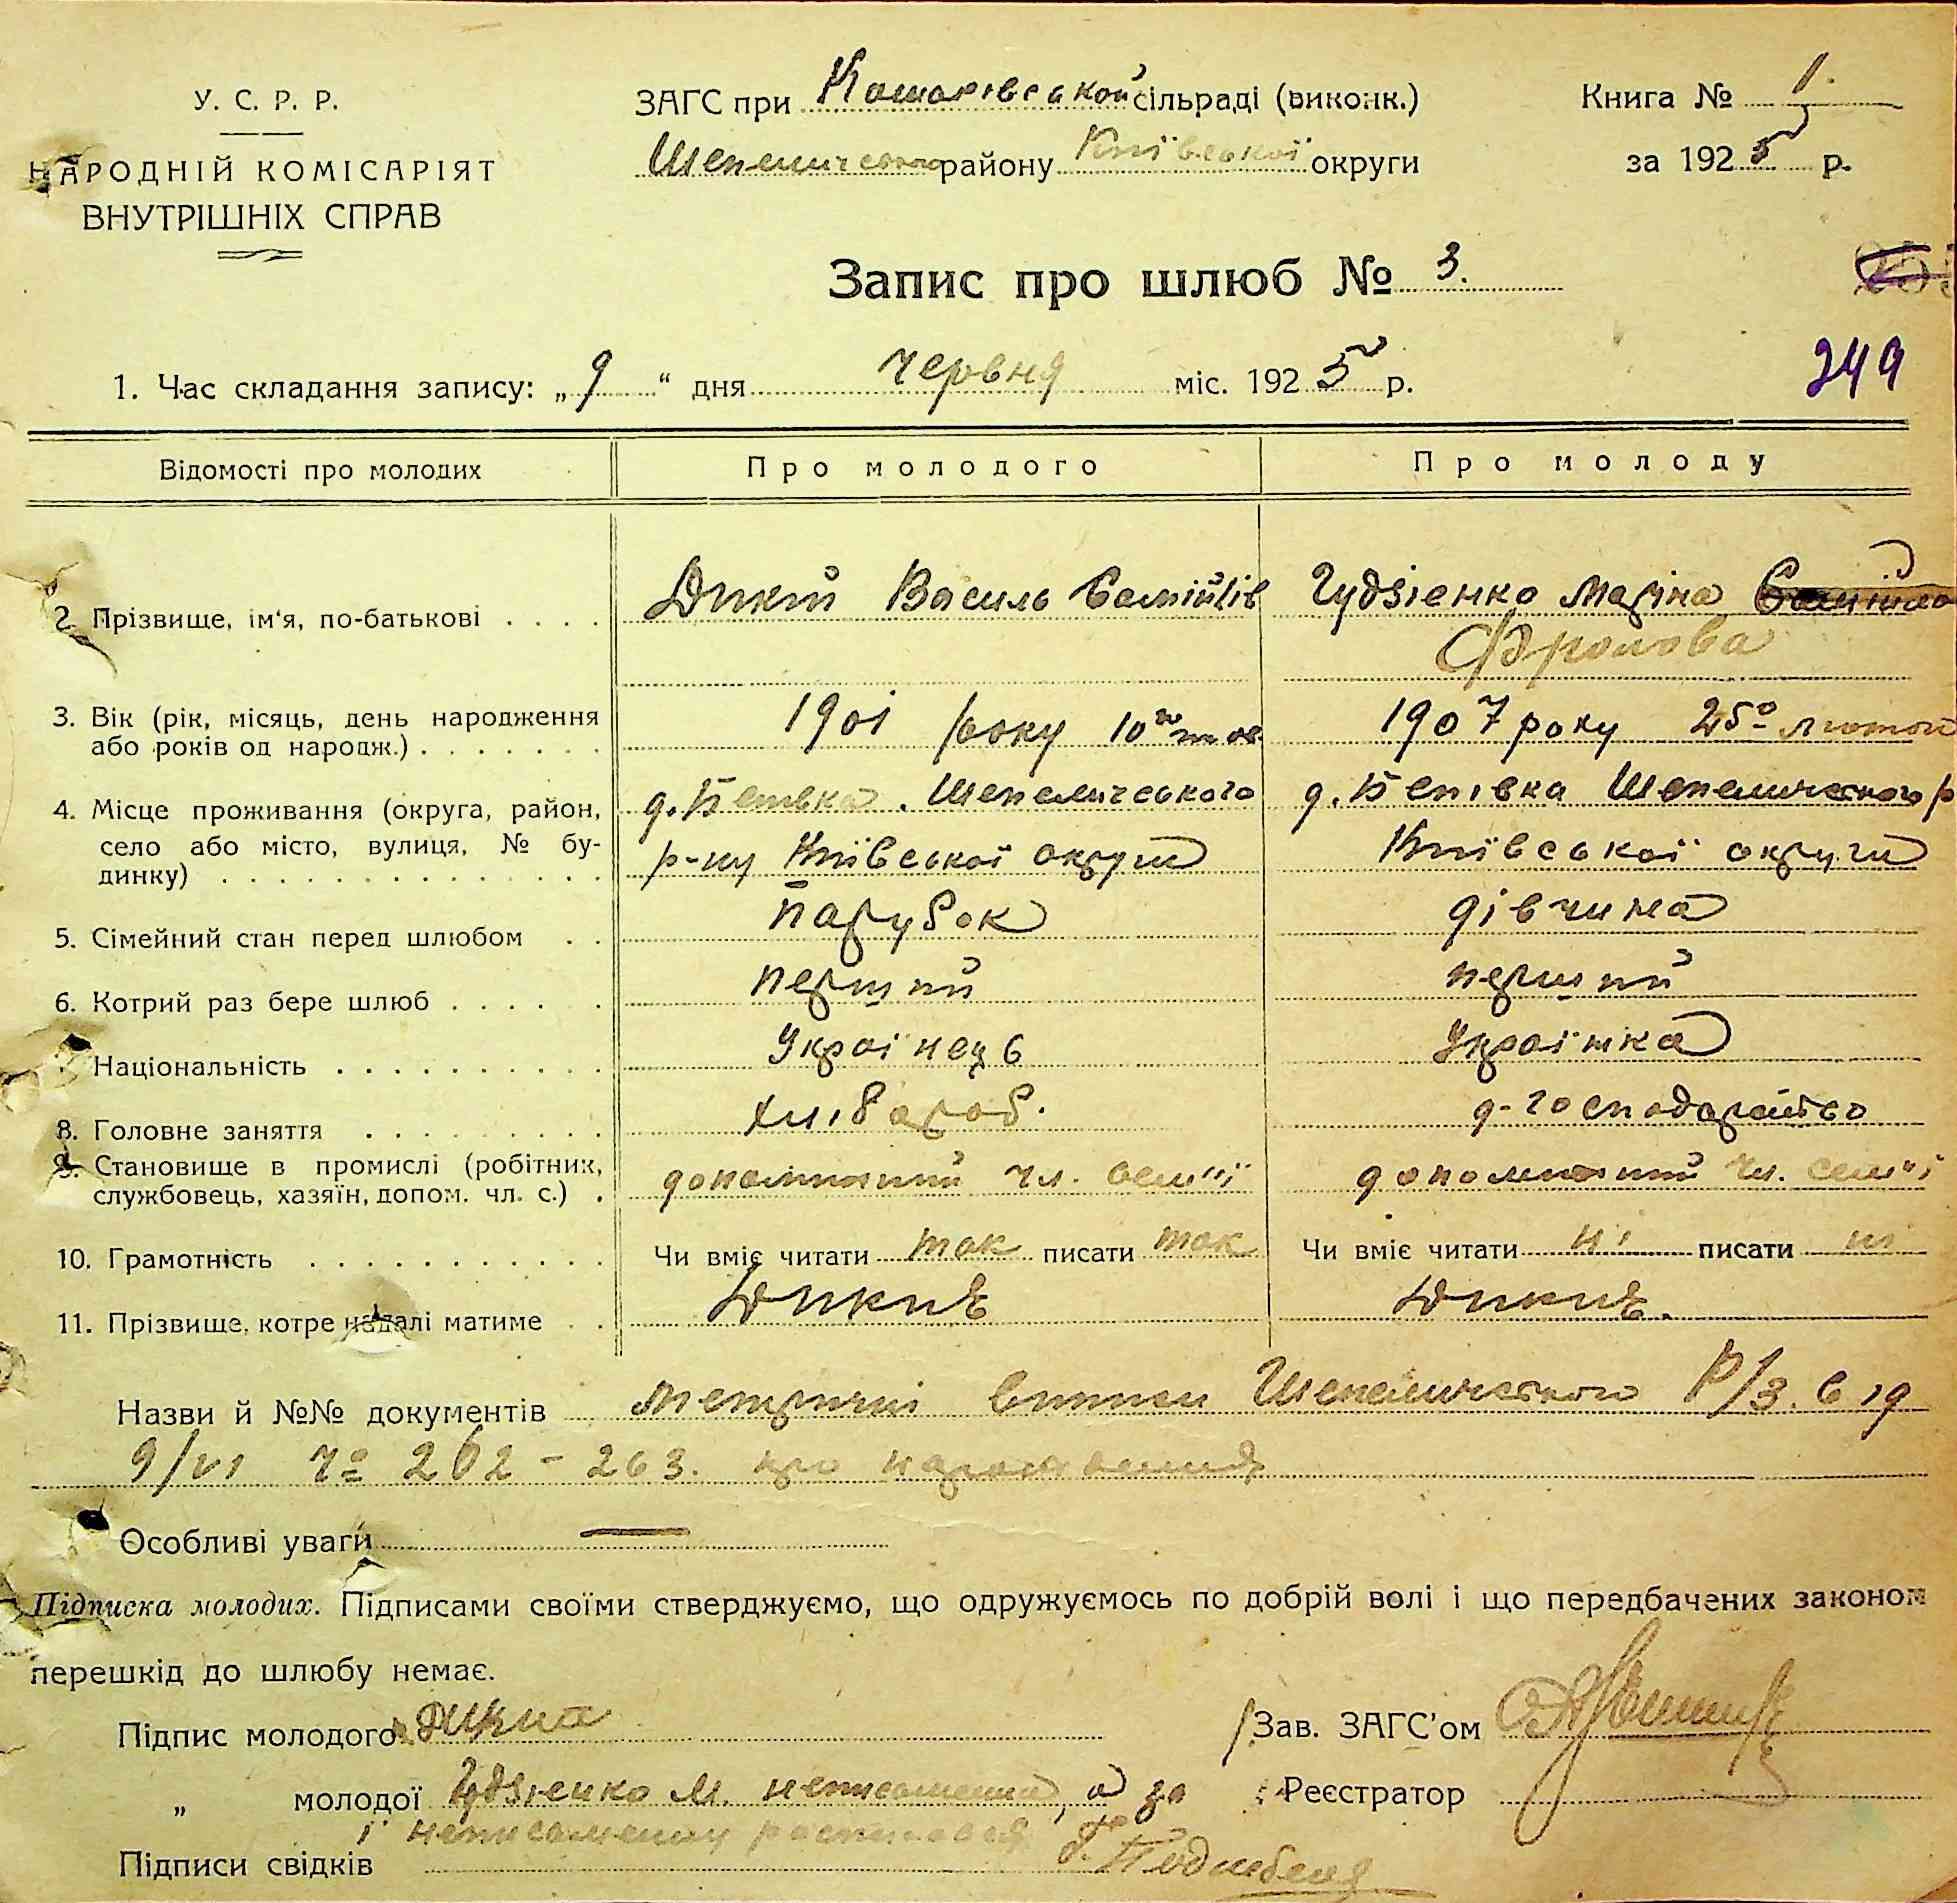 У. С. Р. Р.
НАРОДНІЙ КОМІСАРІЯТ
ВНУТРІШНІХ СПРАВ
ЗАГС при Кошарівської сільраді (виконк.)
Шепелическ району Київської округи
Книга № 1.
за 1925 р.
Запис про шлюб № 3.
249
1. Час складання запису: „9“ дня червня міс. 1925 р.
Відомості про молодих Про молодого Про молоду
2. Прізвище, ім'я, по-батькові . . . . Дикий Василь Гудзієнко Маріна
Фролова
3. Вік (рік, місяць, день народження
або років од народж.) . . . . . . . 1901 року 10го 1907 року 25го лютого
4. Місце проживання (округа, район,
село або місто, вулиця, № бу-
динку) . . . . . . . . . . . . . .
д. Бенівка. Шепелического д. Бенівка Шепелического р
р-ну Київської округи Київської округи
5. Сімейний стан перед шлюбом . . парубок дівчина
6. Котрий раз бере шлюб . . . . . . перший перший
Національність . . . . . . . . . . Українець Українка
8. Головне заняття . . . . . . . . . хліbороб. д-господарство
9. Становище в промислі (робітник,
службовець, хазяїн, допом. чл. с.) . допоміжний чл. семьї допоміжний чл. семьї
10. Грамотність . . . . . . . . . . . Чи вміє читати так писати так Чи вміє читати ні писати ні
11. Прізвище, котре надалі матиме . . Дикий Дикий.
Назви й №№ документів метричні виписи Шепелического Р/З. від
9/VI № 262 - 263. про народження
Особливі уваги —
Підписка молодих. Підписами своїми стверджуємо, що одружуємось по добрій волі і що передбачених законом
перешкід до шлюбу немає.
Підпис молодого Дикий
Зав. ЗАГС'ом
„ молодої Гудзієнко М. неписьменна, а за
Реєстратор
неписьменну
Підписи свідків